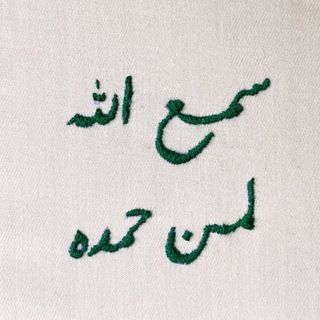 سمع الله
لمن حمده